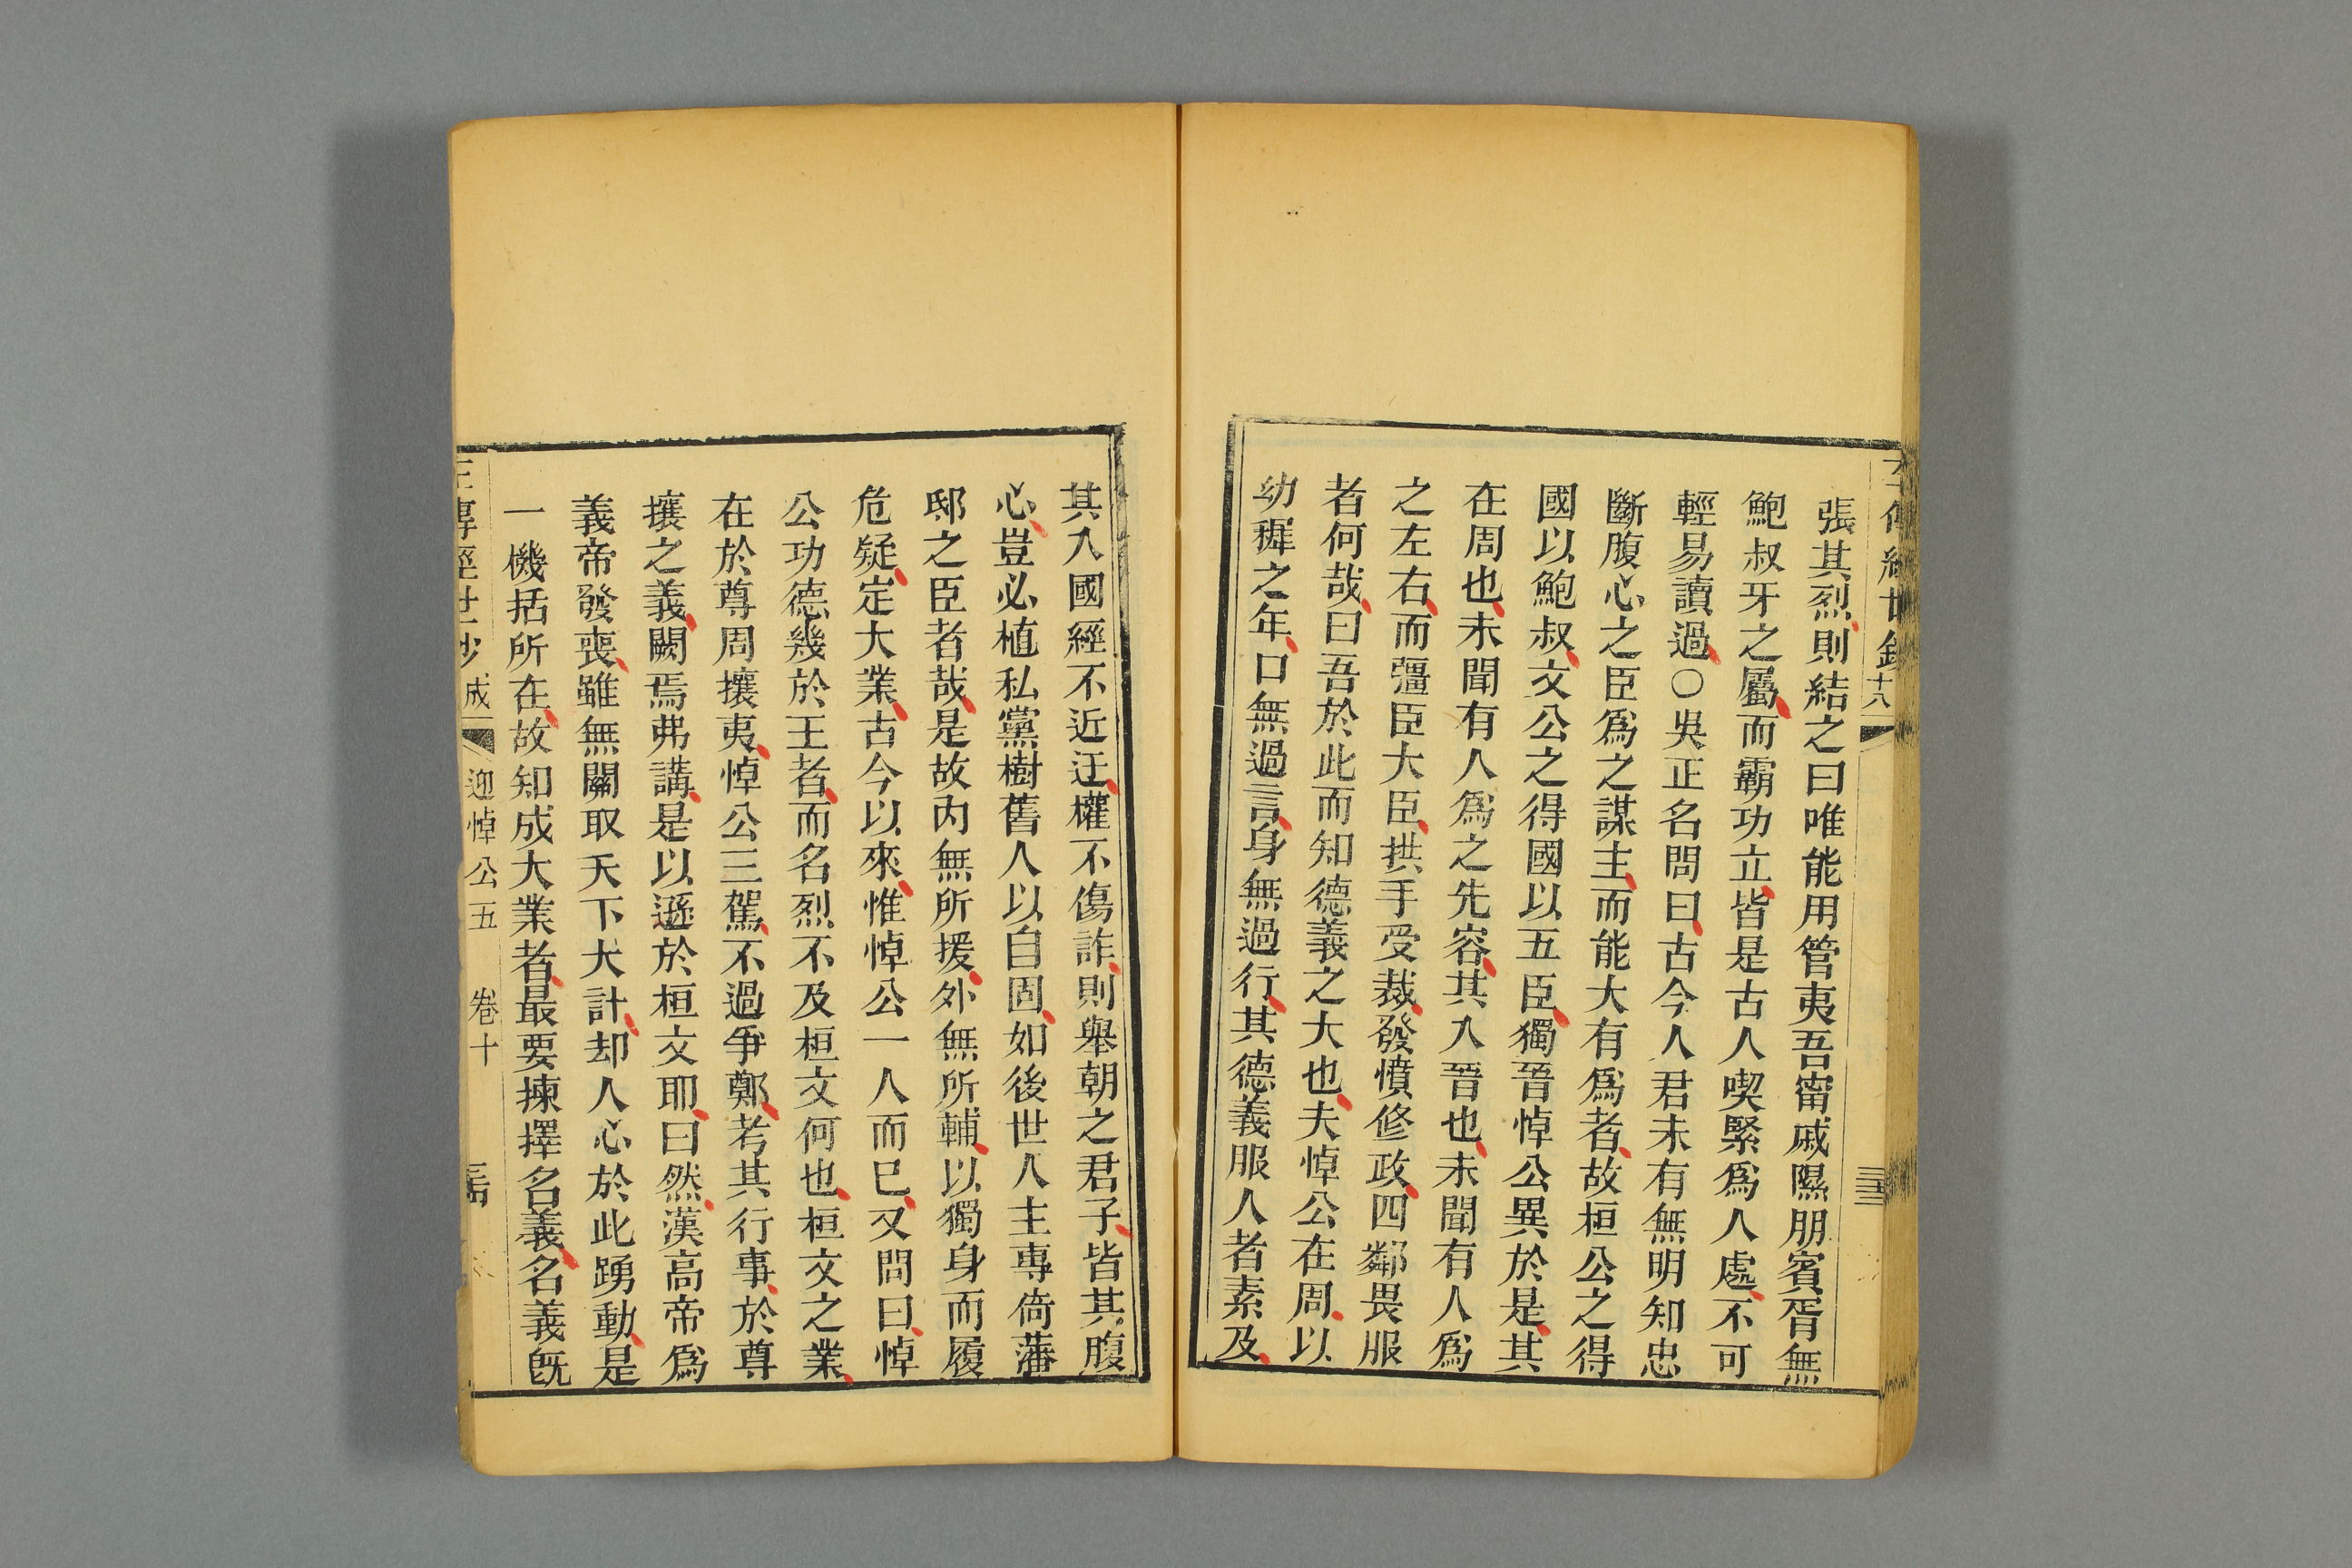 張其烈則結之曰唯能用管夷吾甯戚隰朋賓胥無
鮑叔牙之屬而霸功立皆是古人喫緊爲人處不可
輕易讀過〇吳正名問曰古今人君未有無明知忠
斷腹心之臣爲之謀主而能大有爲者故桓公之得
國以鮑叔文公之得國以五臣獨晉悼公異於是其
在周也未聞有人爲之先容其入晉也未聞有人爲
之左右而彊臣大臣拱手受裁發憤修政四鄰畏服
者何哉曰吾於此而知德義之大也夫悼公在周以
幼穉之年口無過言身無過行其德義服人者素及
其入國經不近迂權不傷詐則舉朝之君子皆其腹
心豈必植私黨樹舊人以自固如後世人主專倚藩
邸之臣者哉是故內無所援外無所輔以獨身而履
危疑定大業古今以來惟悼公一人而已又問曰悼
公功德幾於王者而名烈不及桓文何也桓文之業
在於尊周攘夷悼公三駕不過爭鄭考其行事於尊
攘之義闕焉弗講是以遜於桓文耶曰然漢高帝爲
義帝發喪雖無關取天下大計却人心於此踴動是
一機括所在故知成大業者最要揀擇名義名義旣
成 迎悼公五 卷十